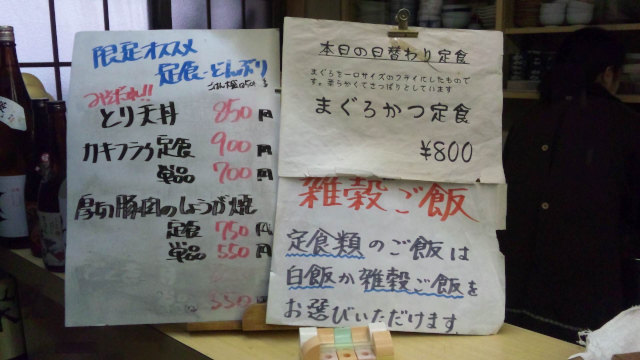 限定オススメ
定食・どんぶり
みそだれ!!
とり天丼 850円
カキフライ定食 900円
単品 700円
厚切豚肉のしょうが焼
定食 750円
単品 550円
550円
本日の日替わり定食
まぐろを一口サイズのフライにしたもので
す。柔らかくてさっぱりとしています
まぐろかつ定食
¥800
雑穀ご飯
定食類のご飯は
白飯か雑穀ご飯を
お選びいただけます。